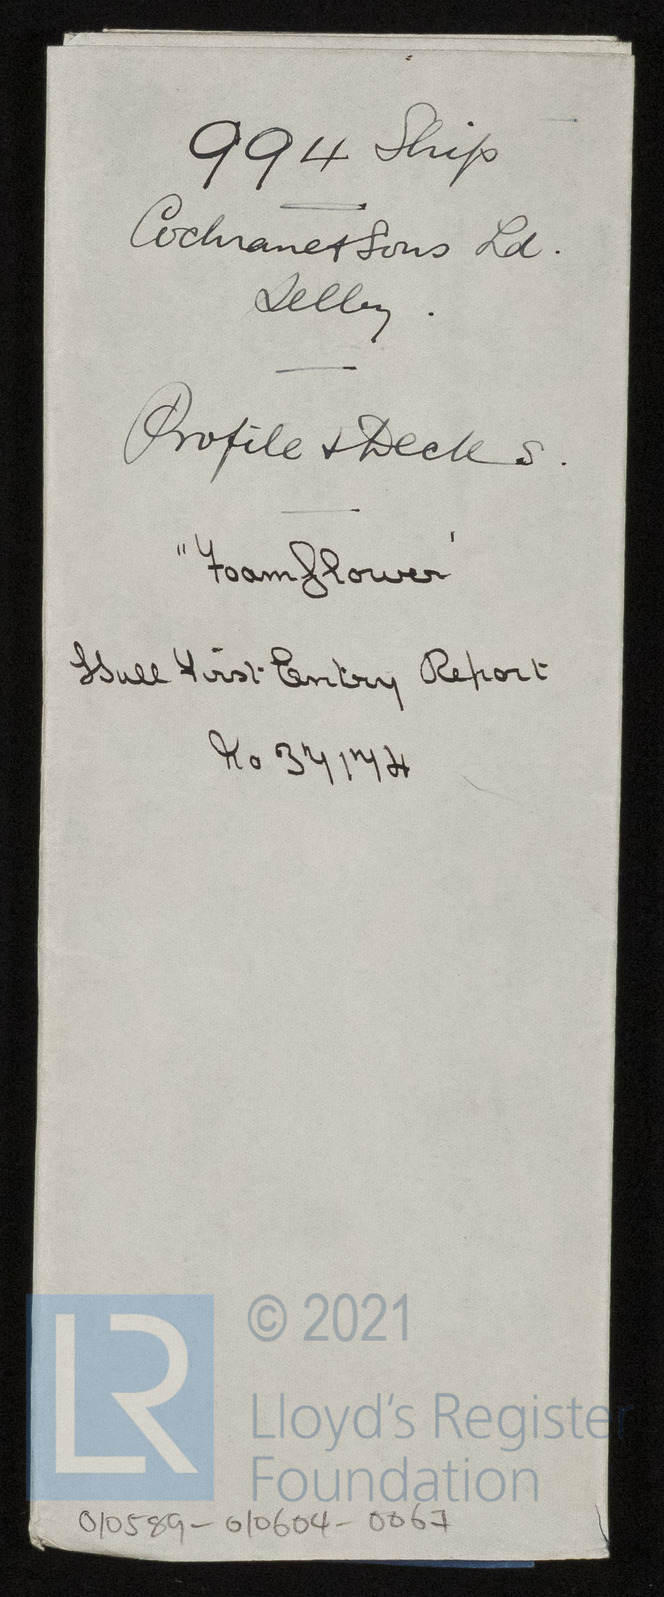 994 Ship
Cochrane & Sons Ld.
Selby.
Profile & Decks.
"Foamflower"
Hull First Entry Report
No 37174
© 2021
LR
Lloyd's Register
Foundation
010589-010604-0067